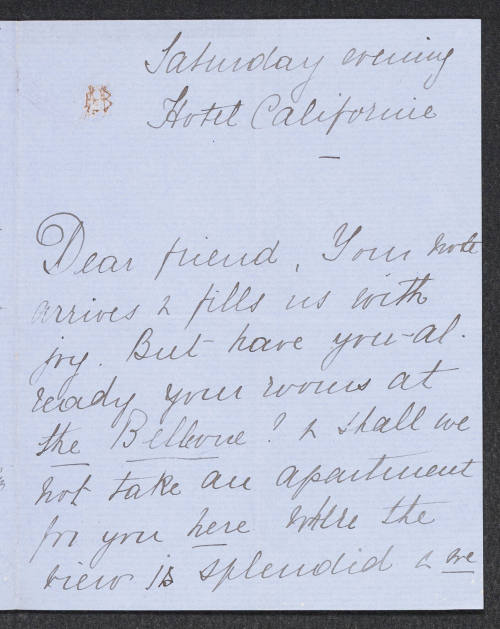 Saturday evening
EB
Hotel Californie
Dear friend, Your note
arrives & fills us with
joy. But have you al-
ready your rooms at
the Bellevue? & shall we
not take an apartment
for you here where the
view is splendid & we